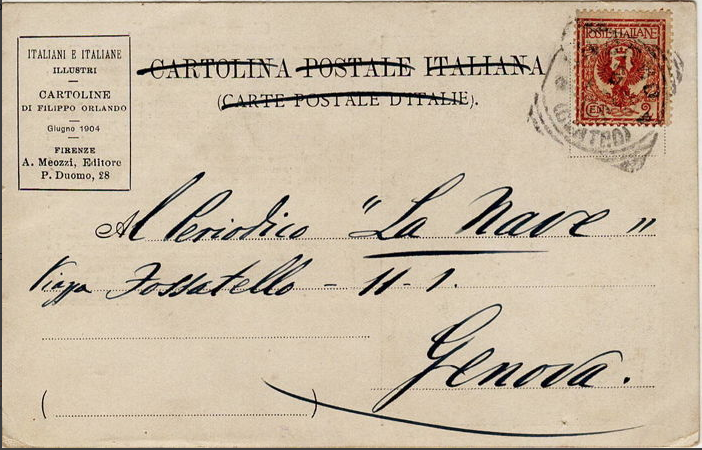 ITALIANI E ITALIANE
ILLUSTRI
CARTOLINE
DI FILIPPO ORLANDO
Giugno 1904
FIRENZE
A. Meozzi, Editore
P. Duomo, 28
CARTOLINA POSTALE ITALIANA
(CARTE POSTALE D'ITALIE).
POSTE ITALIANE
CENT. 2
(CENTRO)
Al Periodico "La Nave"
Piazza Fossatello - 11-1.
Genova.